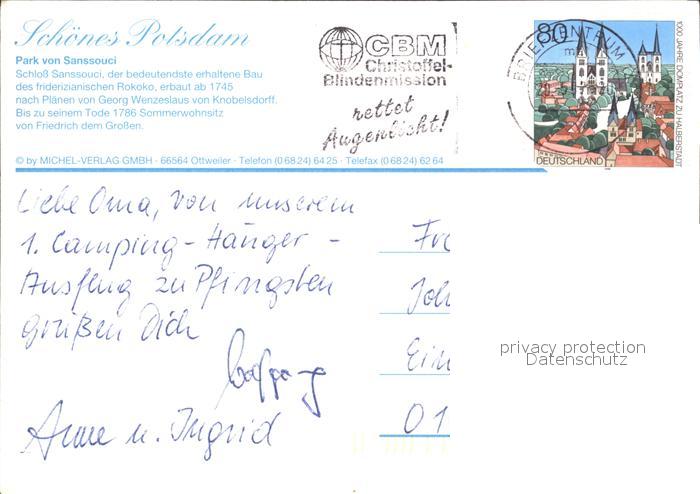 Schönes Potsdam
Park von Sanssouci
Schloß Sanssouci, der bedeutendste erhaltene Bau
des friderizianischen Rokoko, erbaut ab 1745
nach Plänen von Georg Wenzeslaus von Knobelsdorff.
Bis zu seinem Tode 1786 Sommerwohnsitz
von Friedrich dem Großen.
© by MICHEL-VERLAG GMBH · 66564 Ottweiler · Telefon (0 68 24) 64 25 · Telefax (0 68 24) 62 64
CBM
Christoffel-
Blindenmission
rettet
Augenlicht!
BRIEFZENTRUM
80
DEUTSCHLAND
1000 JAHRE DOMPLATZ ZU HALBERSTADT
Liebe Oma, von unserem
1. Camping-Hänger-
Ausflug zu Pfingsten
grüßen Dich
Wolfgang
Anne u. Ingrid
Fr
Joh
Ein
01
privacy protection
Datenschutz